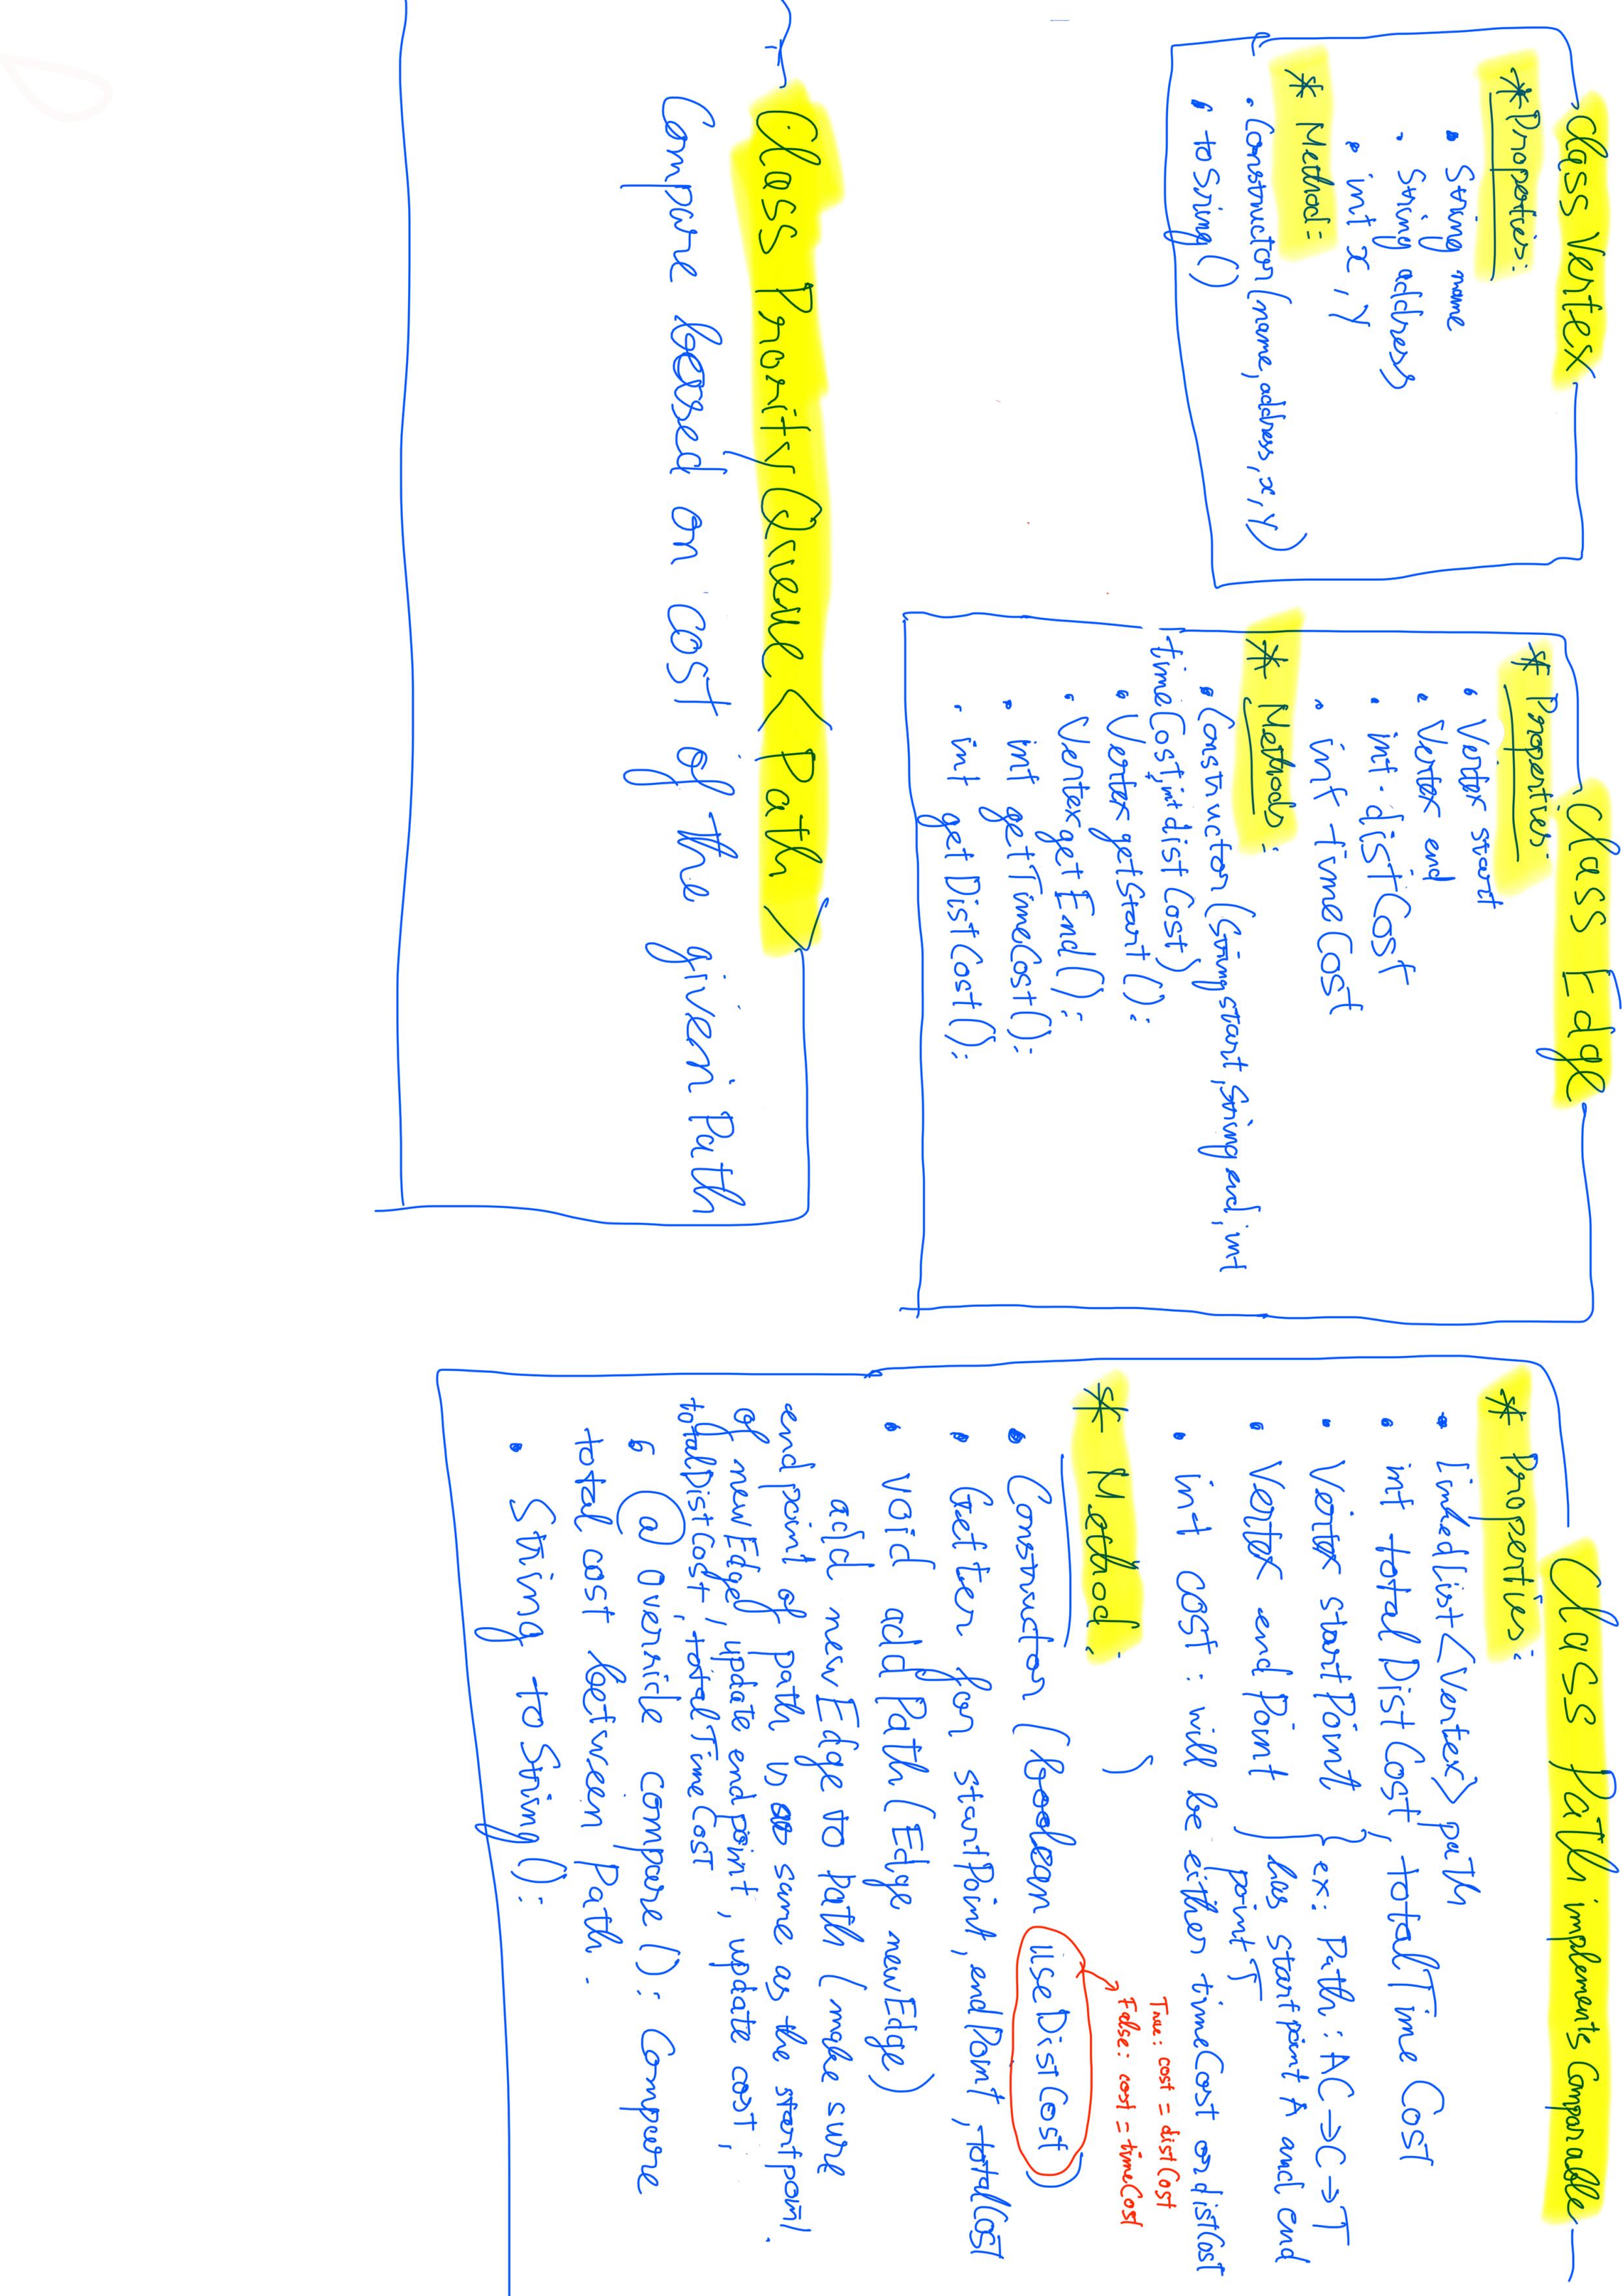 class Vertex
* Properties:
• String name
• String address
• int x, y
* Method:
• Constructor(name, address, x, y)
• toSring()
class Edge
* Properties:
• Vertex start
• Vertex end
• int distCost
• int timeCost
* Methods:
• Constructor(String start, String end, int
timeCost, int distCost)
• Vertex getStart():
• Vertex getEnd():
• int getTimeCost():
• int getDistCost():
Class Path implements Comparable
* Properties:
• LinkedList<Vertex> path
• int totalDistCost, totalTimeCost
• Vertex startPoint
• Vertex endPoint
ex: Path: AC→C→T
has start point A and end
point T
• int cost: will be either timeCost or distCost
True: cost = distCost
False: cost = timeCost
* Method:
)
• Constructor (boolean useDistCost)
• Getter for startPoint, endPoint, totalCost
• void addPath(Edge newEdge)
add newEdge to path (make sure
end point of path is same as the startpoint
of newEdge, update endpoint, update cost,
totalDistCost, totalTimeCost
• @override compare(): Compare
total cost between Path.
• String toString():
Class ProrityQueue<Path>
Compare based on cost of the given Path